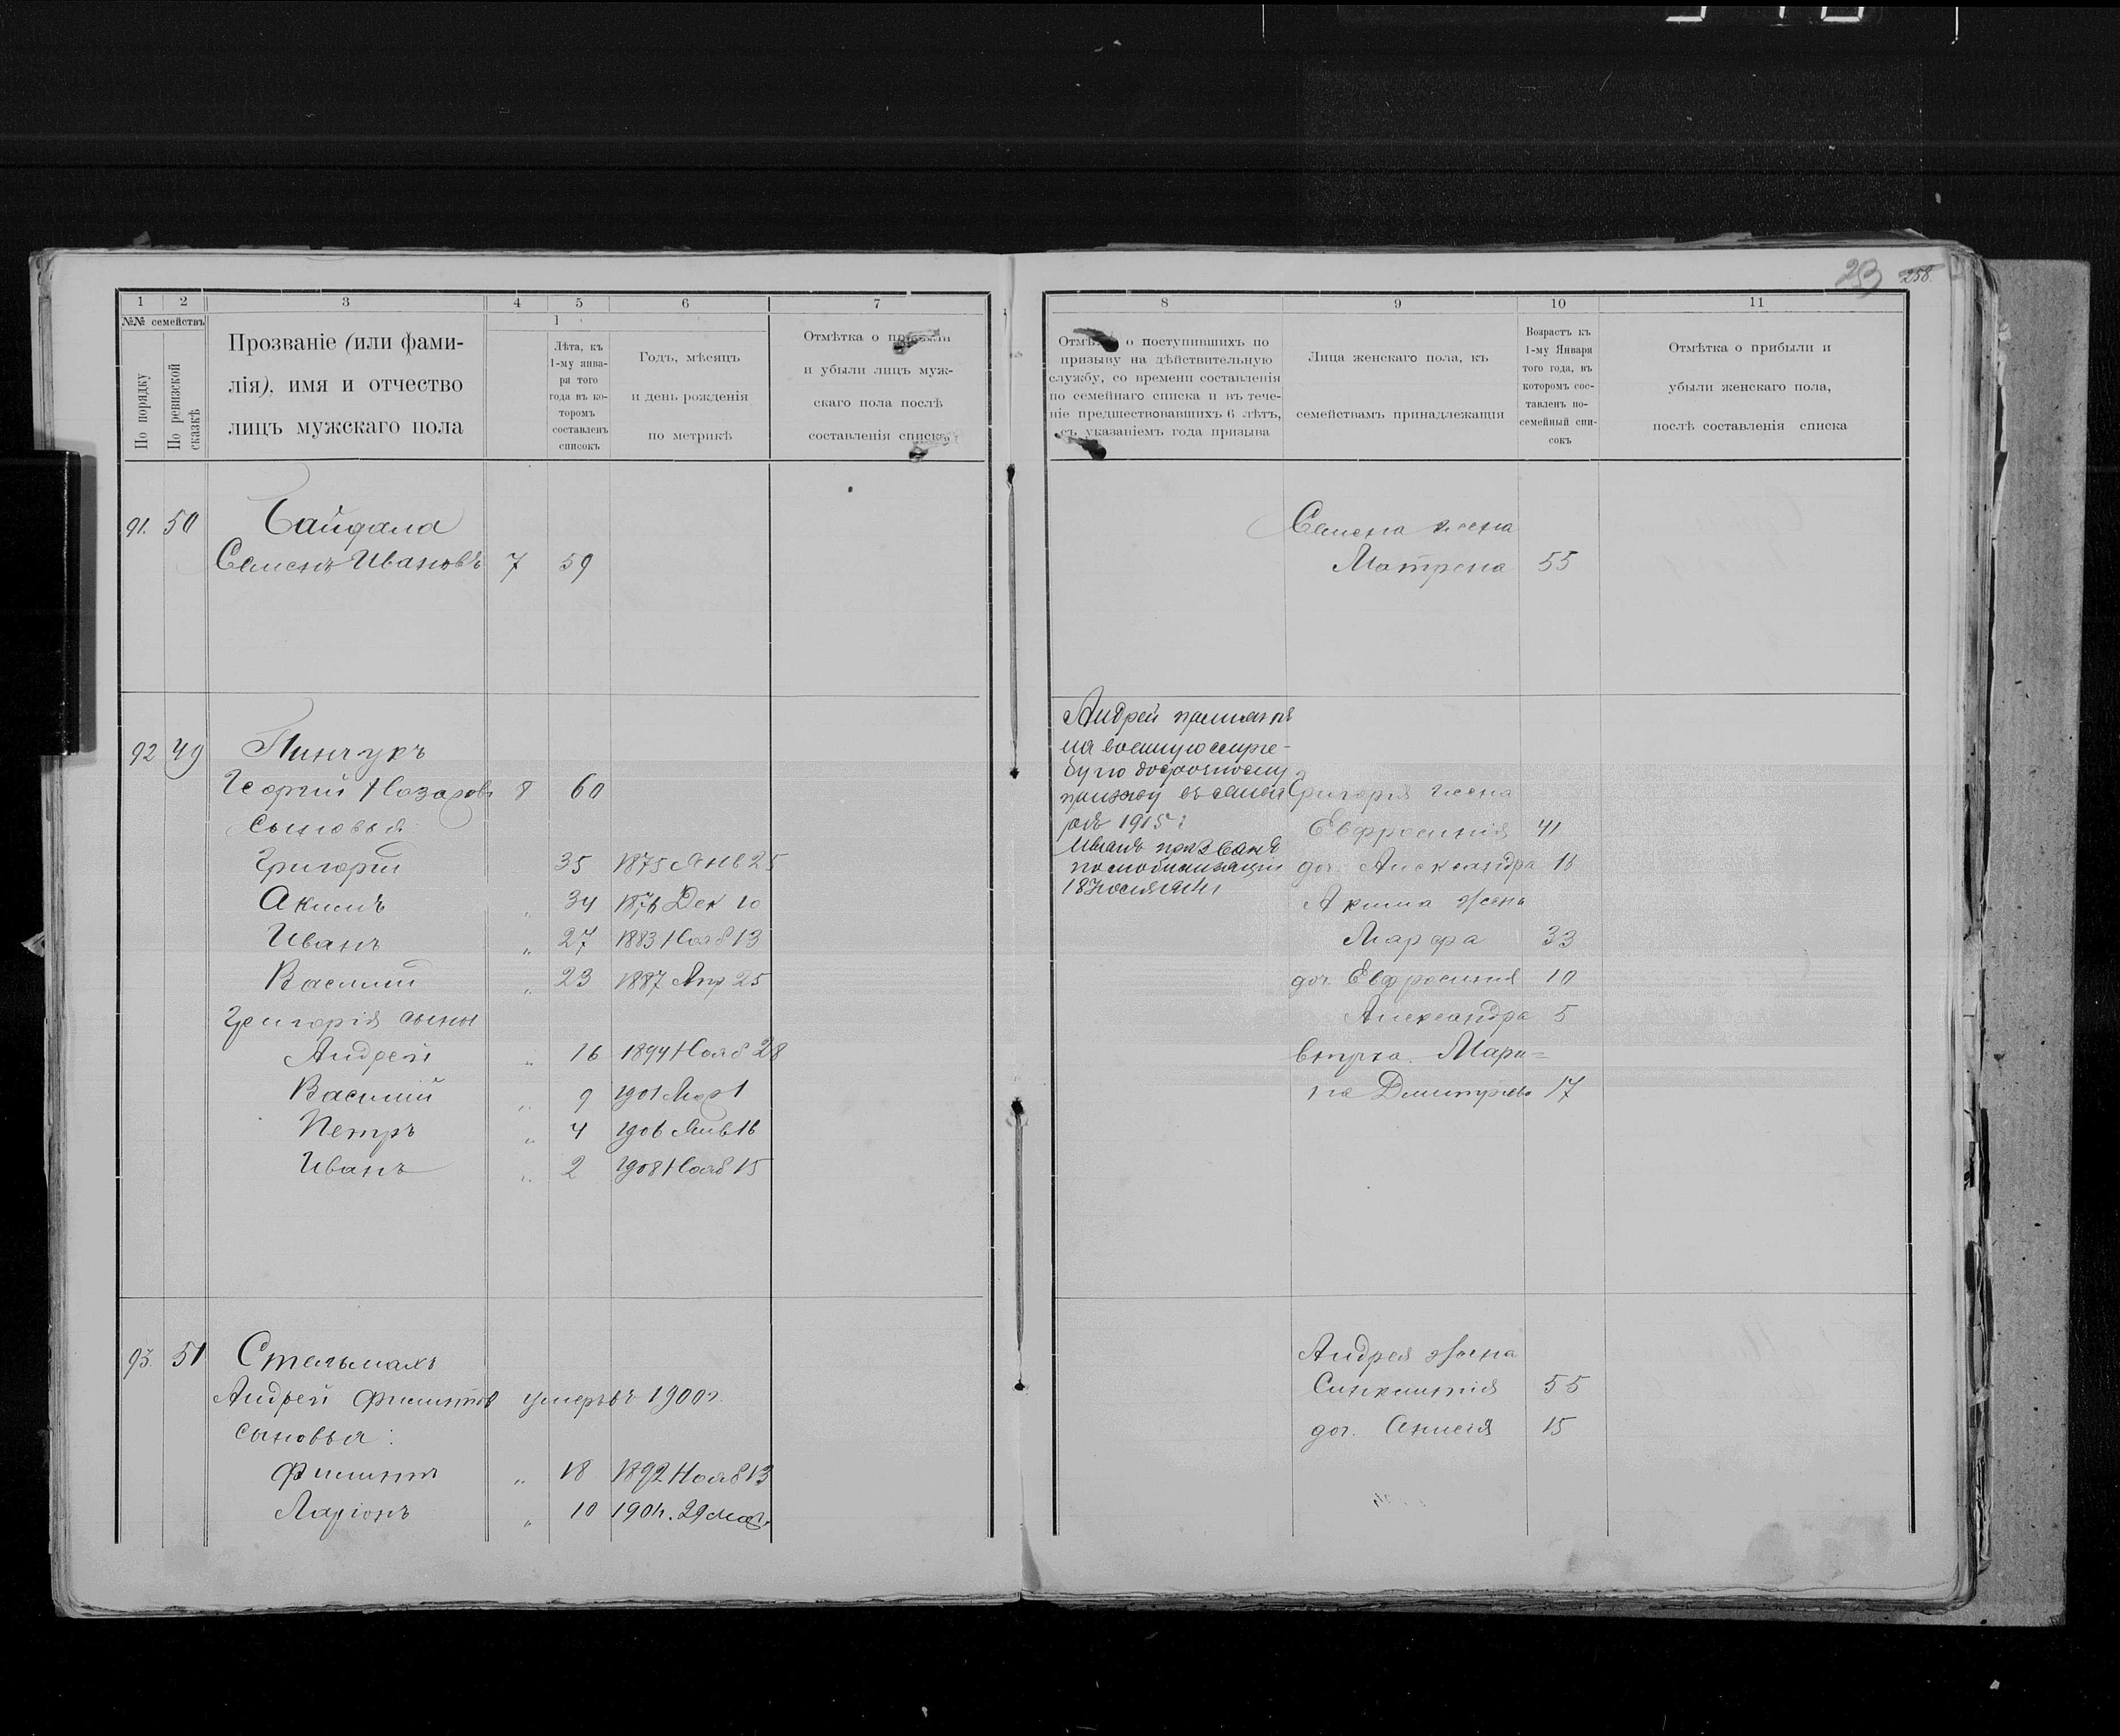 258
1 2 3 4 5 6 7
№№ семействъ
По порядку
По ревизской сказкѣ
Прозваніе (или фами-
лія), имя и отчество
лицъ мужскаго пола
I
Лѣта, къ
1-му янва-
ря того
года въ ко-
торомъ
составленъ
списокъ
Годъ, мѣсяцъ
и день рожденія
по метрикѣ
Отмѣтка о прибыли
и убыли лицъ муж-
скаго пола послѣ
составленія списка
91. 50
Семенъ Ивановъ 7 59
92 49 Пинчукъ
Георгій Назаровъ 8 60
Сыновья
Григорій 35 1875 Янв 25
Акимъ „ 34 1876 Дек 10
Иванъ „ 27 1883 Нояб 13
Василий „ 23 1887 Апр 25
Григорія сыны
Андрей „ 16 1894 Нояб 28
Василій „ 9 1901 Мар 1
Петръ „ 4 1906 Янв 16
Иванъ „ 2 1908 Нояб 15
93. 51 Стельмахъ
Андрей Филиппов умеръ въ 1900 г.
сыновья:
Филиппъ „ 18 1892 Нояб 13
Ларіонъ „ 10 190 . 29
8 9 10 11
Отмѣтка о поступившихъ по
призыву на дѣйствительную
службу, со времени составленія
по семейнаго списка и въ тече-
ніе предшествовавшихъ 6 лѣтъ,
съ указаніемъ года призыва
Лица женскаго пола, къ
семействамъ принадлежащія
Возрастъ къ
1-му Января
того года, въ
которомъ сос-
тавленъ по-
семейный спи-
сокъ
Отмѣтка о прибыли и
убыли женскаго пола,
послѣ составленія списка
Семена жена
Матрена 55
Андрей принятъ
на военную служ-
бу по досрочному
призыву въ
1915 г
Иванъ призванъ
по мобилизаціи
18 Іюля 1914 г
Григорія жена
Евфросинія 41
доч. Александра 18
Акима жена
Марфа 33
доч. Евфросинія 10
Александра 5
внучка. Мари=
на Дмитріева 17
Андрея жена
Синклитія 55
доч. Анисія 15